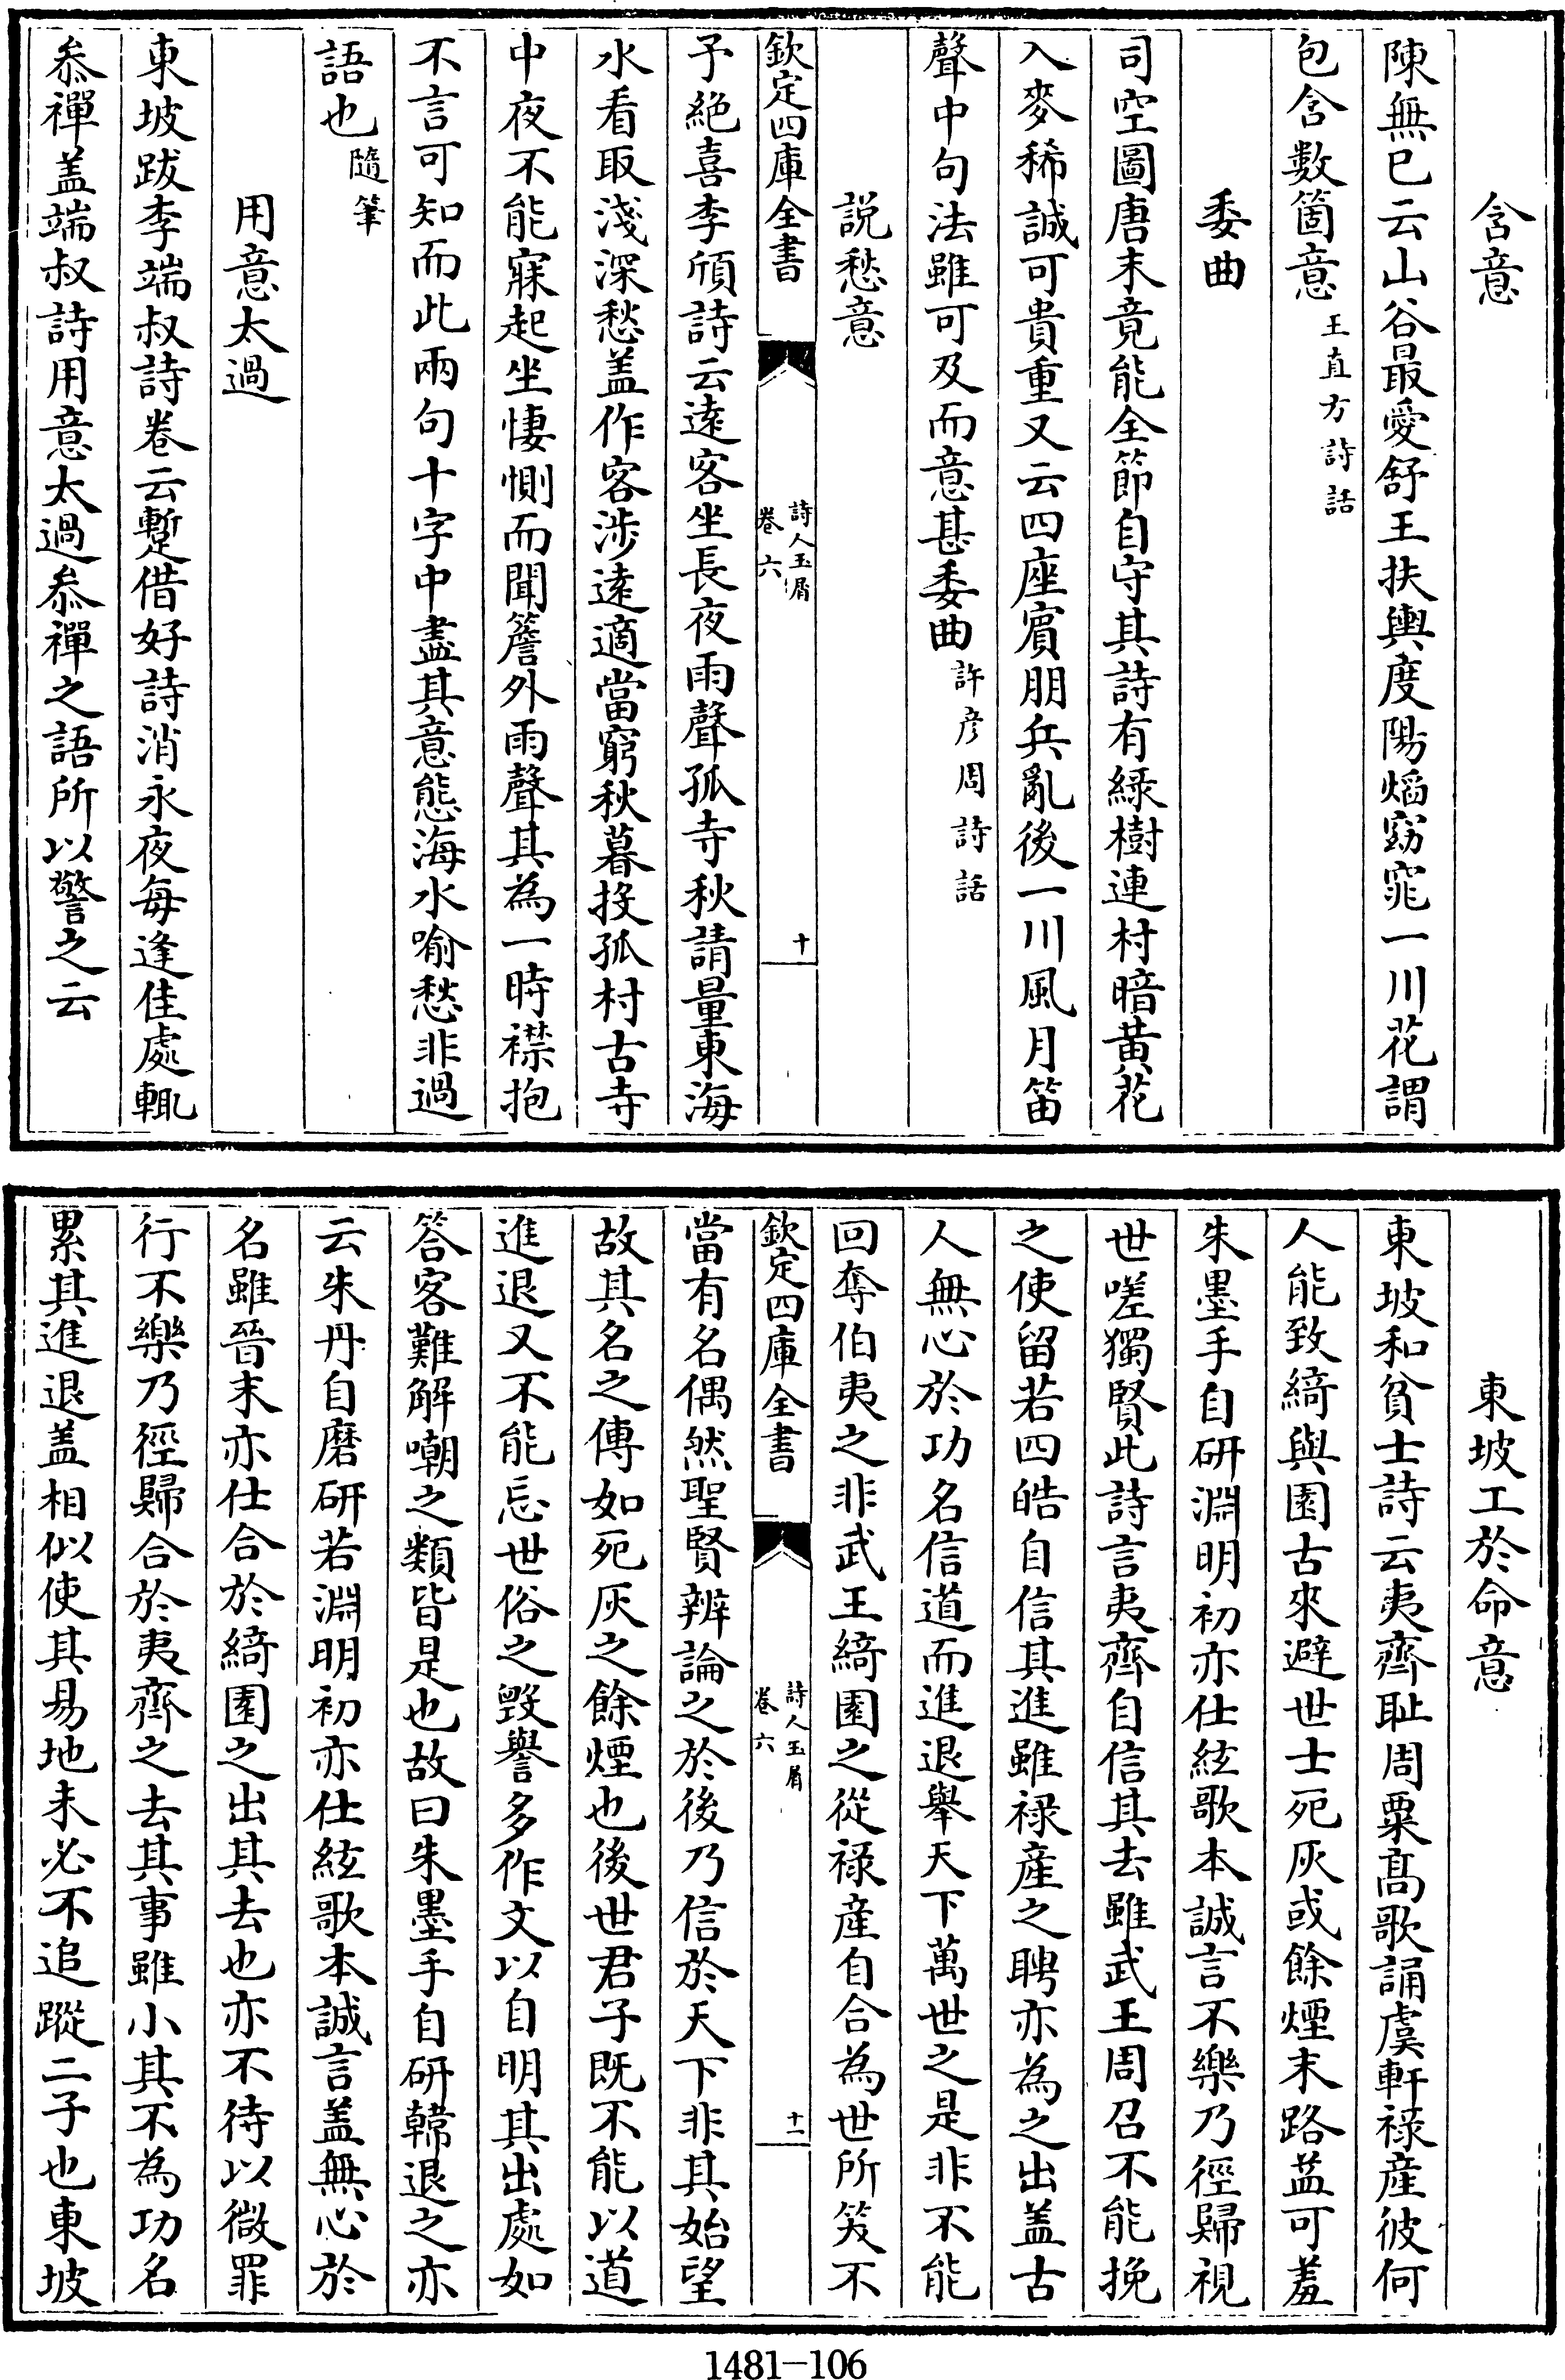 含意
陳無已云山谷最愛舒王扶輿度陽焰窈窕一川花謂
包含數箇意王直方詩話
委曲
司空圖唐末竟能全節自守其詩有綠樹連村暗黄花
入麥稀誠可貴重又云四座賓朋兵亂後一川風月笛
聲中句法雖可及而意甚委曲許彦周詩話
説愁意
欽定四庫全書
詩人玉屑
卷六
十
予絶喜李頎詩云逺客坐長夜雨聲孤寺秋請量東海
水看取淺深愁盖作客涉逺適當窮秋暮投孤村古寺
中夜不能寐起坐悽惻而聞簷外雨聲其為一時襟抱
不言可知而此兩句十字中盡其意態海水喻愁非過
語也隨筆
用意太過
東坡跋李端叔詩卷云蹔借好詩消永夜每逢佳處輒
叅禪盖端叔詩用意太過叅禪之語所以警之云
東坡工於命意
東坡和貧士詩云夷齊耻周粟髙歌誦虞軒禄産彼何
人能致綺與園古來避世士死灰或餘煙末路葢可羞
朱墨手自研淵明初亦仕絃歌本誠言不樂乃徑歸視
世嗟獨賢此詩言夷齊自信其去雖武王周召不能挽
之使留若四皓自信其進雖禄産之聘亦為之出盖古
人無心於功名信道而進退舉天下萬世之是非不能
回奪伯夷之非武王綺園之從禄産自合為世所笑不
欽定四庫全書
詩人玉屑
卷六
十一
當有名偶然聖賢辨論之於後乃信於天下非其始望
故其名之傳如死灰之餘煙也後世君子既不能以道
進退又不能忘世俗之毁譽多作文以自明其出處如
答客難解嘲之類皆是也故曰朱墨手自研韓退之亦
云朱丹自磨研若淵明初亦仕絃歌本誠言盖無心於
名雖晉末亦仕合於綺園之出其去也亦不待以微罪
行不樂乃徑歸合於夷齊之去其事雖小其不為功名
累其進退盖相似使其易地未必不追蹤二子也東坡
1481-106